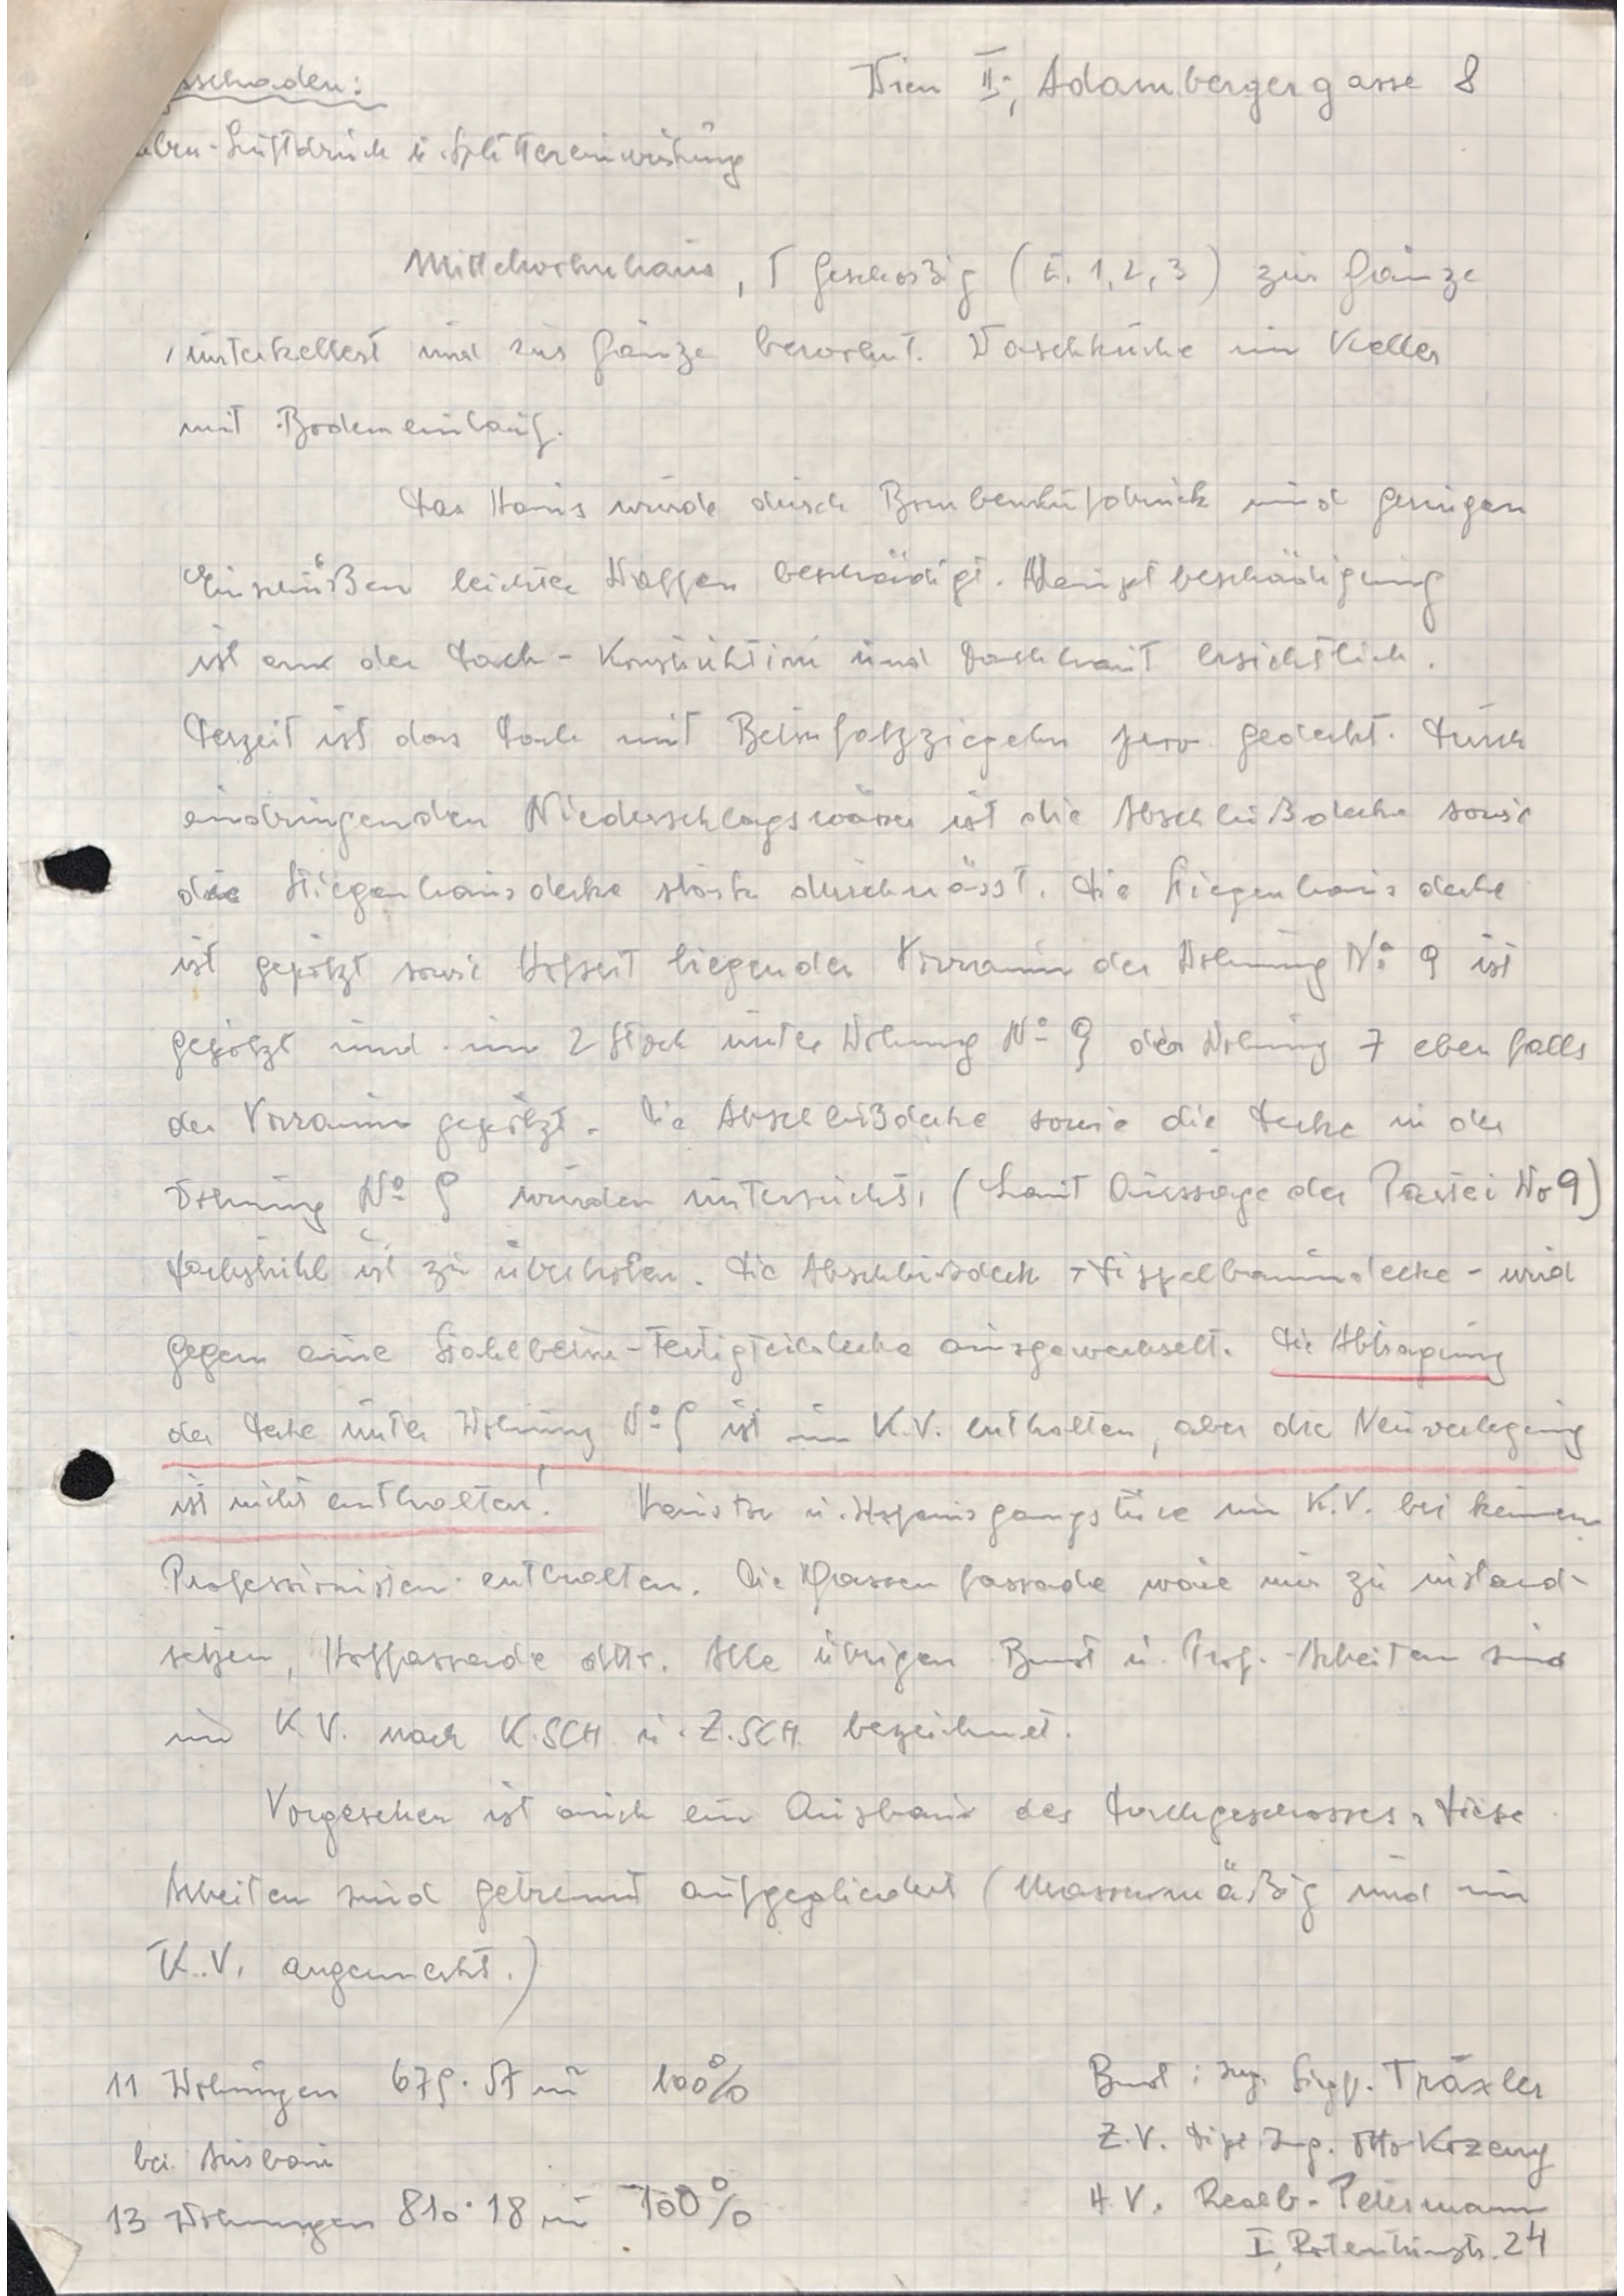 sschaden:
Wien II., Adambergergasse 8
ben-Luftdruck u. Splittereinwirkung
Mittelwohnhaus, geschoßig (E. 1, 2, 3) zur Gänze
unterkellert und zur Gänze bewohnt. Waschküche im Keller
mit Bodeneinlauf.
Das Haus wurde durch Bombenluftdruck und geringen
Einschüßen leichter Waffen beschädigt. Hauptbeschädigung
ist an der Dach-Konstruktion und Dachhaut ersichtlich.
Derzeit ist das Dach mit Betonfalzziegeln prov. gedeckt. Durch
eindringenden Niederschlagswässer ist die Abschlußdecke sowie
die Stiegenhausdecke stark durchnässt. Die Stiegenhausdecke
ist gepölzt sowie Hofseit liegender Vorraum der Wohnung No 9 ist
gepölzt und im 2 Stock unter Wohnung No 9 der Wohnung 7 ebenfalls
der Vorraum gepölzt. Die Abschlußdecke sowie die Decke in der
Wohnung No 9 wurden untersucht, (Laut Aussage der Partei No 9)
Dachstuhl ist zu überholen. Die Abschlussdeck - Dippelbaumdecke - wird
gegen eine Stahlbeton-Fertigteildecke ausgewechselt. Die Abtragung
der Decke unter Wohnung No 9 ist im K.V. enthalten, aber die Neuverlegung
ist nicht enthalten! Haustor u. Hofeingangstüre im K.V. bei keinen
Professionisten enthalten. Die Gassenfassade wäre nur zu instand-
setzen, Hoffassade dtto. Alle übrigen Bmst u. Prof.-Arbeiten sind
im K.V. nach K.SCH u. Z.SCH. bezeichnet.
Vorgesehen ist auch ein Ausbau des Dachgeschosses, diese
Arbeiten sind getrennt aufgegliedert (Massenmäßig und im
K.V. angemerkt.)
11 Wohnungen 679.57 m² 100%
bei Ausbau
13 Wohnungen 810.18 m² 100%
Bmst: Ing. Siegf. Träxler
Z.V. Dipl. Ing. Otto Kozeny
H.V. Realb. Petermann
I., Rotenturmstr. 24